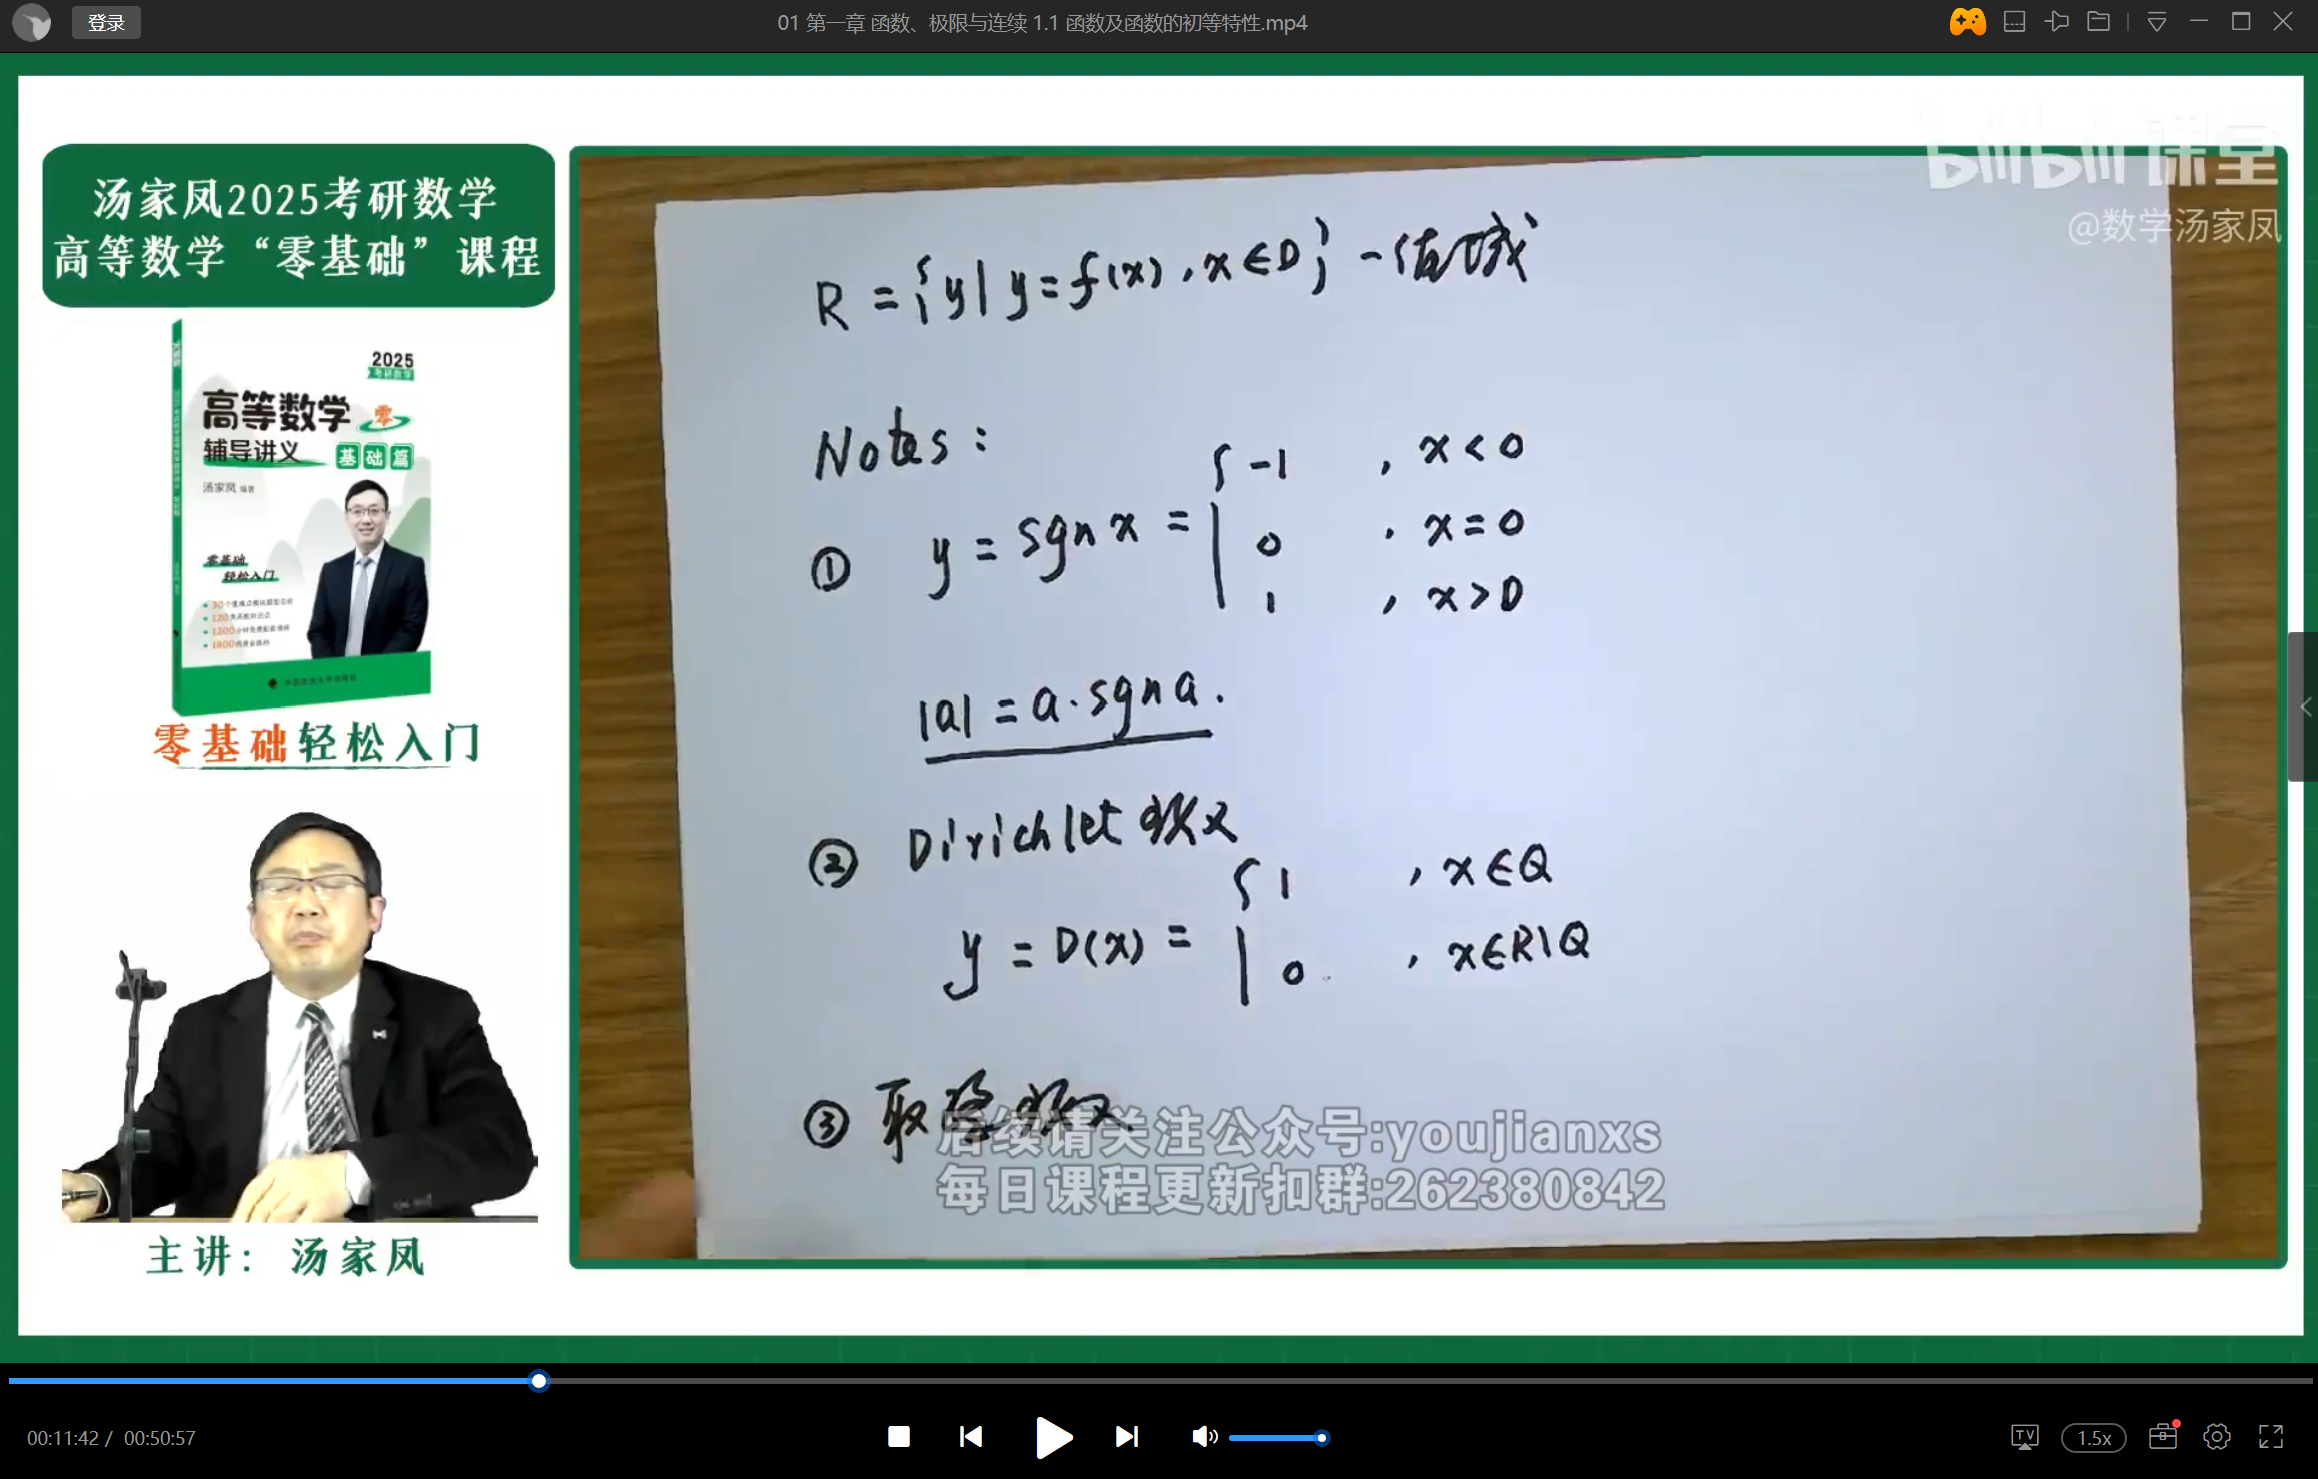 登录
01 第一章 函数、极限与连续 1.1 函数及函数的初等特性.mp4
汤家凤2025考研数学
高等数学“零基础”课程
2025
考研数学
高等数学 零
辅导讲义 基础篇
汤家凤 编著
零基础
轻松入门
零基础轻松入门
主讲：汤家凤
bilibili 课堂
@数学汤家凤
R = {y | y = f(x), x ∈ D} - 值域
Notes:
① y = sgn x = { -1 , x < 0
0 , x = 0
1 , x > 0
|a| = a · sgn a.
② Dirichlet 函数
y = D(x) = { 1 , x ∈ Q
0 , x ∈ R \ Q
③ 取整函数
后续请关注公众号:youjianxs
每日课程更新扣群:262380842
00:11:42 / 00:50:57
TV
1.5x